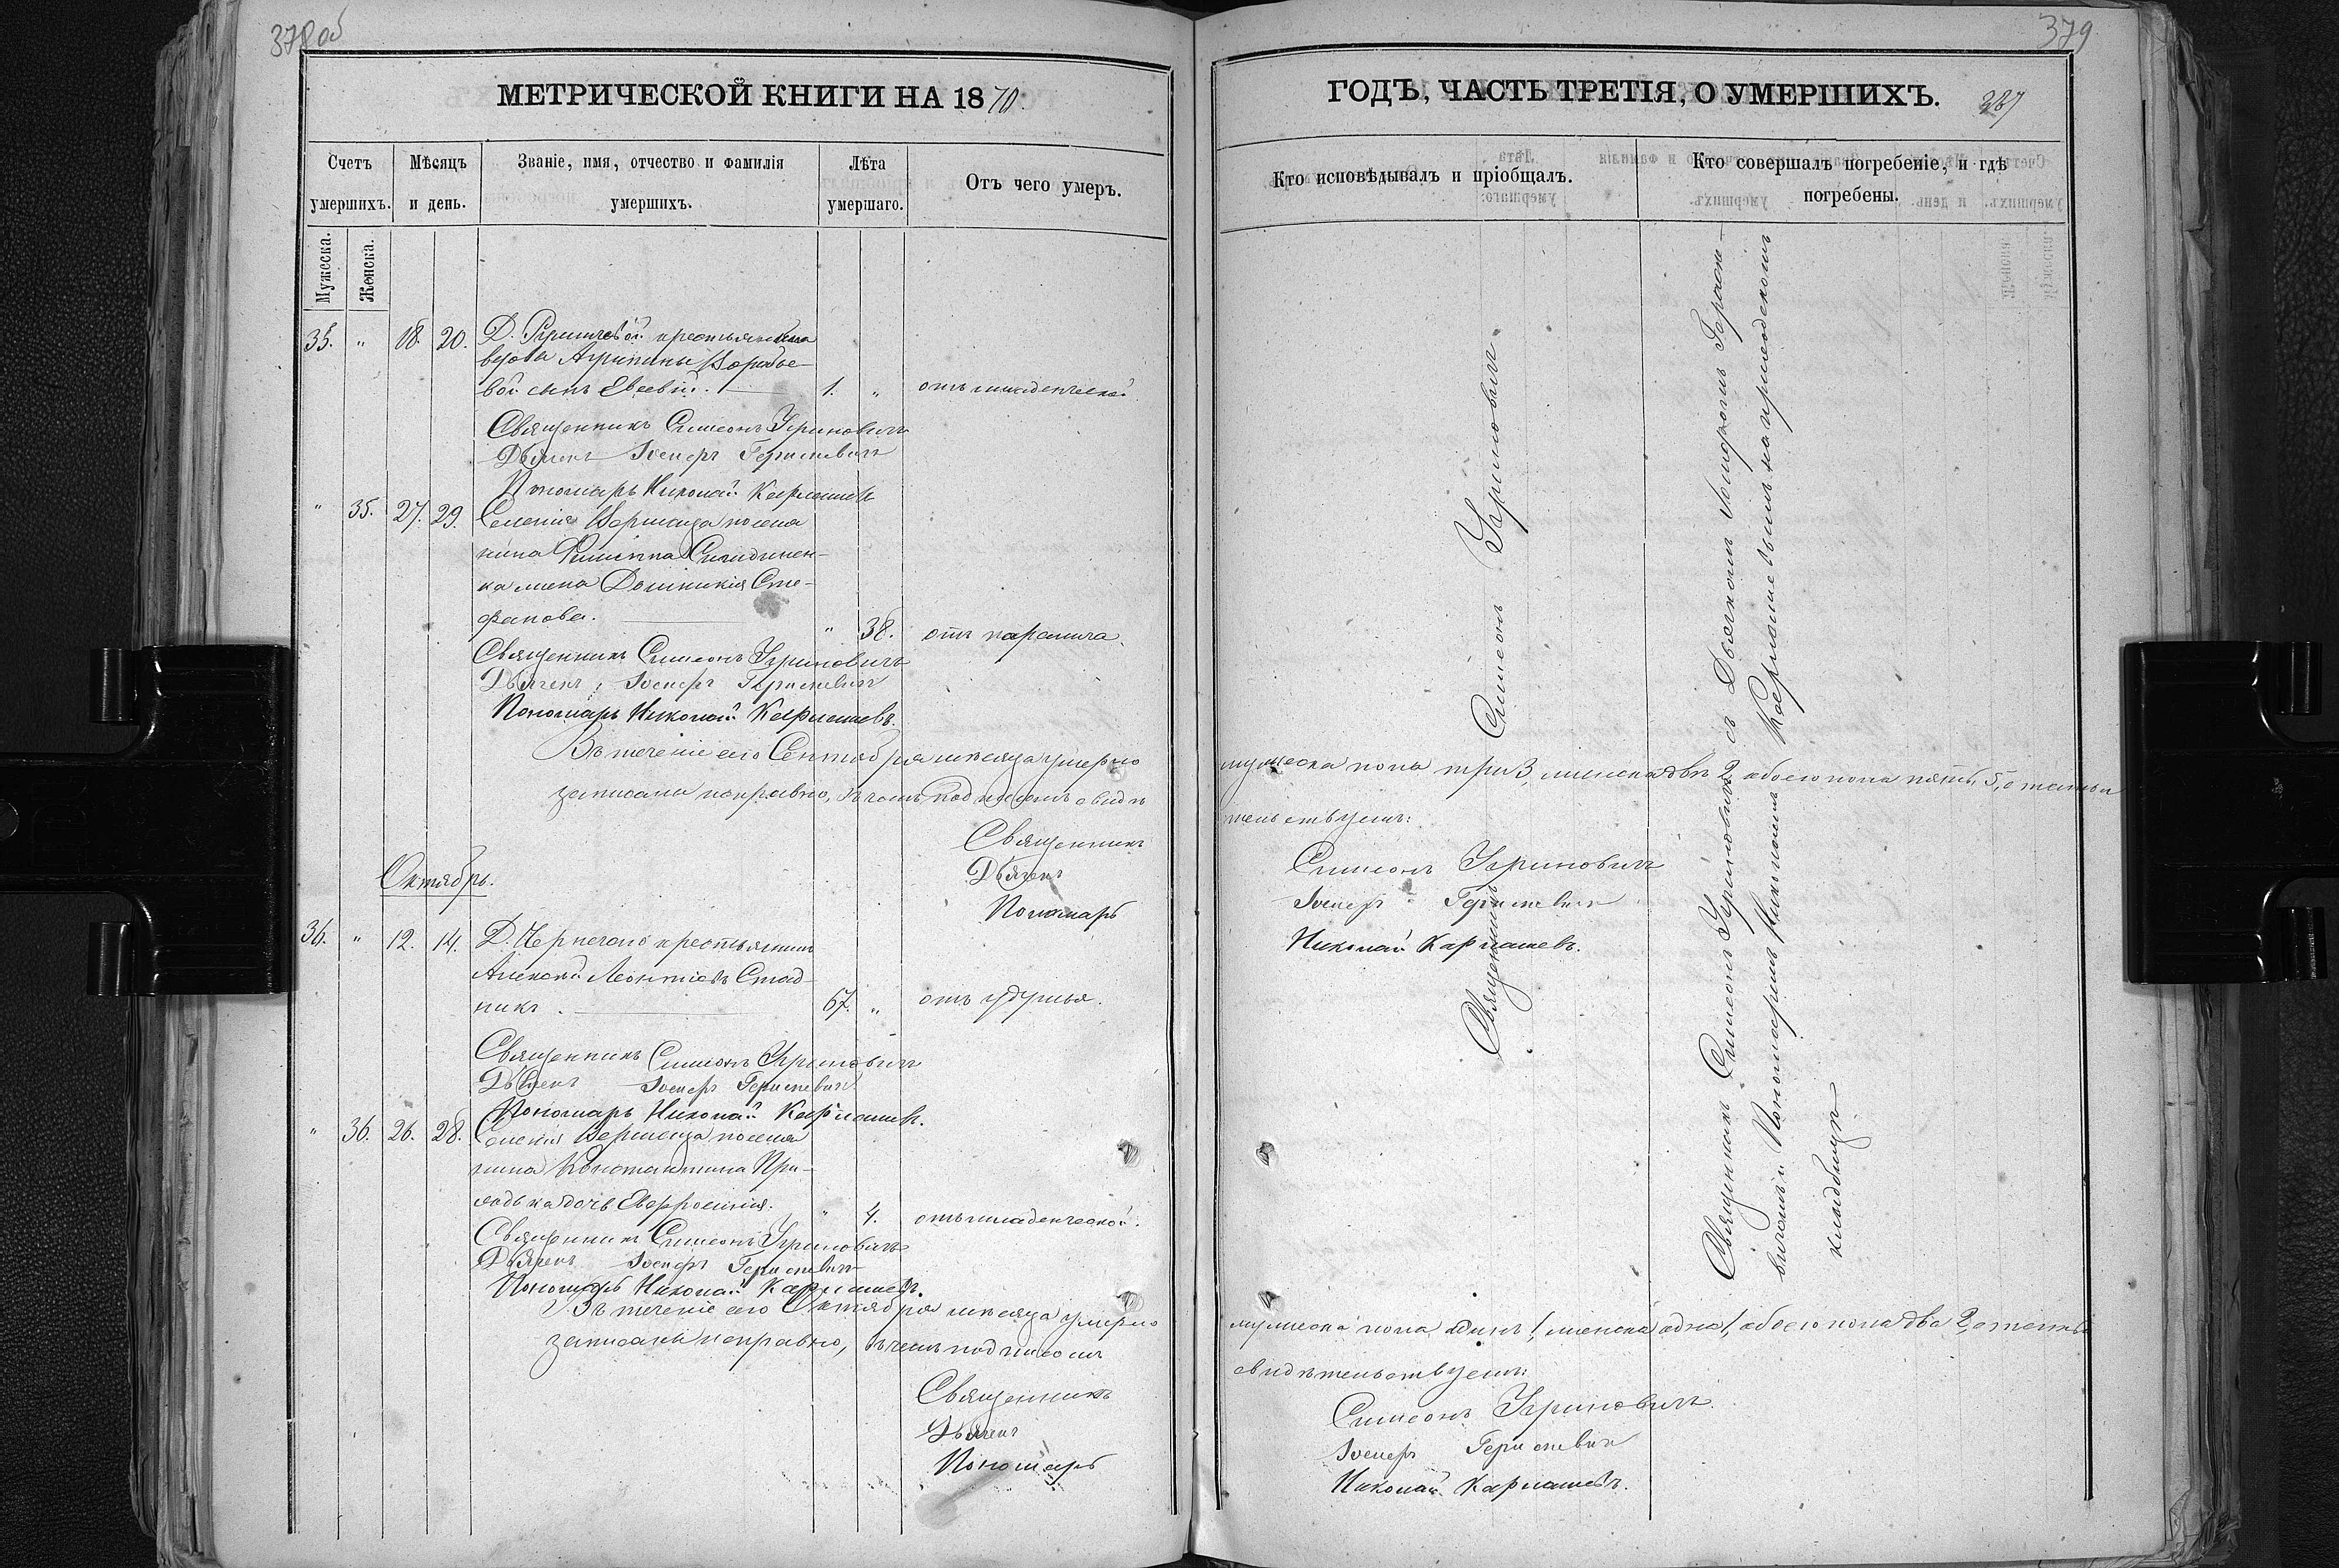 378 об
МЕТРИЧЕСКОЙ КНИГИ НА 1870.
Счетъ умершихъ.
Мѣсяцъ и день.
Званіе, имя, отчество и фамилія умершихъ.
Лѣта умершаго.
Отъ чего умеръ.
Мужеска.
Женска.
35. " 18. 20. Д. крестьянина
вдова Агрипины Воробье-
вой сынъ Евсевій. 1. " отъ младенческой.
Священникъ Симеонъ Угриновичъ
Дьячекъ Іосифъ
Пономарь Николай Карпашевъ
" 35. 27. 29. Селенія поселя
нина Филиппа
ка жена Домникія Сте-
фанова. " 38. отъ паралича.
Священникъ Симеонъ Угриновичъ
Дьячекъ Іосифъ
Пономарь Николай Карпашевъ.
Въ теченіе сего Сентября мѣсяца умерло
записаны исправно, въ чемъ подписомъ свидѣ
Священникъ
Дьячекъ
Пономарь
Октябрь.
36. " 12. 14. Д. крестьянинъ
Алексѣй Леонтіевъ Стад-
никъ. 67. " отъ удушья.
Священникъ Симеонъ Угриновичъ
Дьячекъ Іосифъ
Пономарь Николай Карпашевъ.
" 36. 26. 28. Селенія поселя
нина Константина При-
ходька дочь Евфросинія. " 4. отъ младенческой.
Священникъ Симеонъ Угриновичъ
Дьячекъ Іосифъ
Пономарь Николай Карпашевъ.
Въ теченіе сего Октября мѣсяца умерло
записаны исправно, въ чемъ подписомъ
Священникъ
Дьячекъ
Пономарь
379
ГОДЪ, ЧАСТЬ ТРЕТІЯ, О УМЕРШИХЪ. 387
Кто исповѣдывалъ и пріобщалъ.
Кто совершалъ погребеніе, и гдѣ погребены.
Священникъ Симеонъ Угриновичъ
Священникъ Симеонъ Угриновичъ съ Дьячкомъ Іосифомъ
вичомъ и Пономаремъ Николаемъ Карпашевымъ на приходскомъ
кладбищѣ
мужеска пола три 3, женска двѣ 2, обоего пола пять 5, а
тельствуемъ:
Симеонъ Угриновичъ
Іосифъ
Николай Карпашевъ.
мужеска пола одинъ 1, женска одна 1, обоего пола два 2,
свидѣтельствуемъ:
Симеонъ Угриновичъ.
Іосифъ
Николай Карпашевъ.